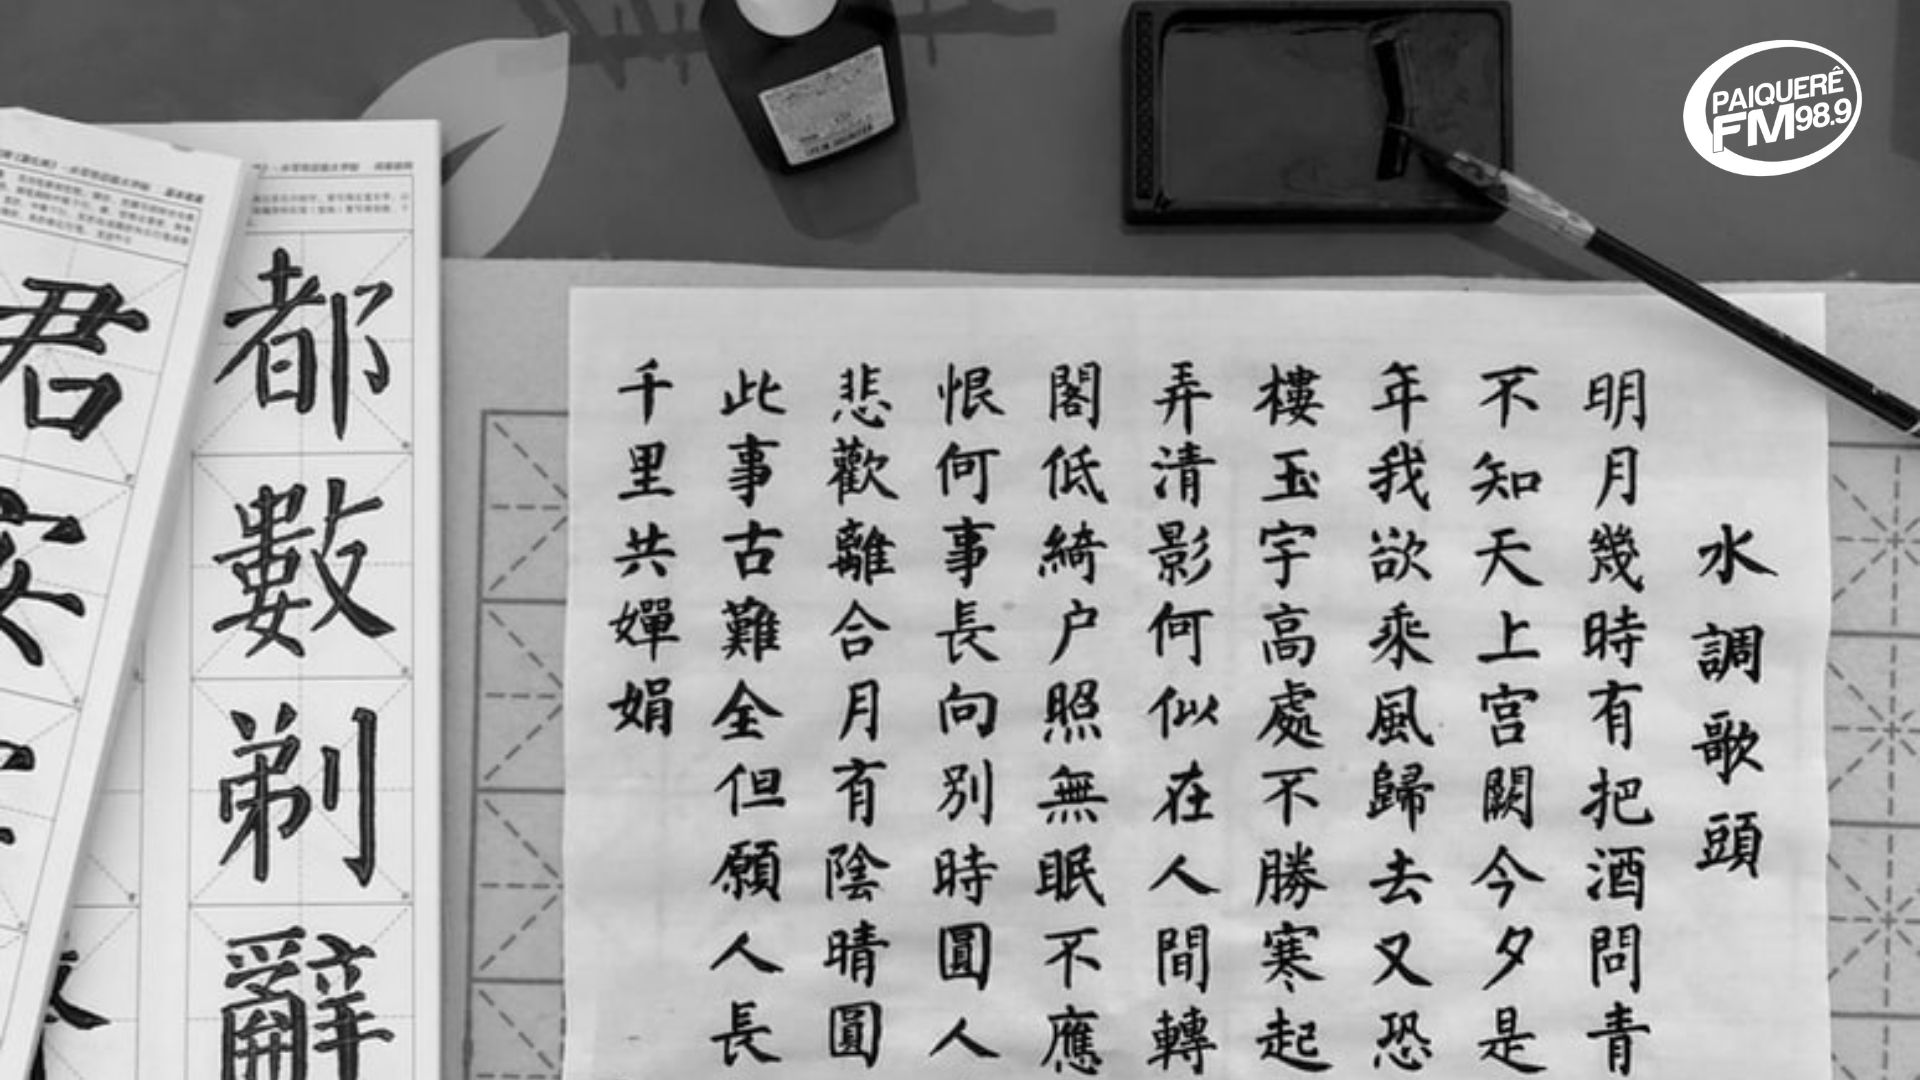 PAIQUERÊ
FM 98.9
水調歌頭
明月幾時有把酒問青
不知天上宫闕今夕是
年我欲乘風歸去又恐
樓玉宇高處不勝寒起
弄清影何似在人間轉
閣低綺户照無眠不應
恨何事長向別時圓人
悲歡離合月有陰晴圓
此事古難全但願人長
千里共嬋娟
都數剃辭
君安